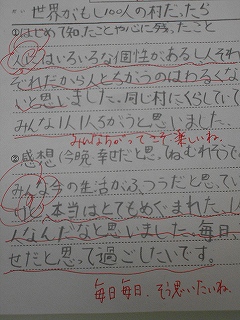 世界がもし100人の村だったら
①はじめて知ったことや心に残ったこと
人にはいろいろな個性があるし、それ
それだから人とちがうのはわるくな
いと思いました。同じ村にくらしていて
みんな1人1人ちがうと思いました。
みんなちがってこそ楽しいね。
②感想(今晩、幸せだと思
みんな今の生活がふつうだと思ってい
本当はとてもめぐまれた
人なんだなと思いました。毎日、
せだと思って過ごしたいです。
毎日毎日、そう思いたいね。